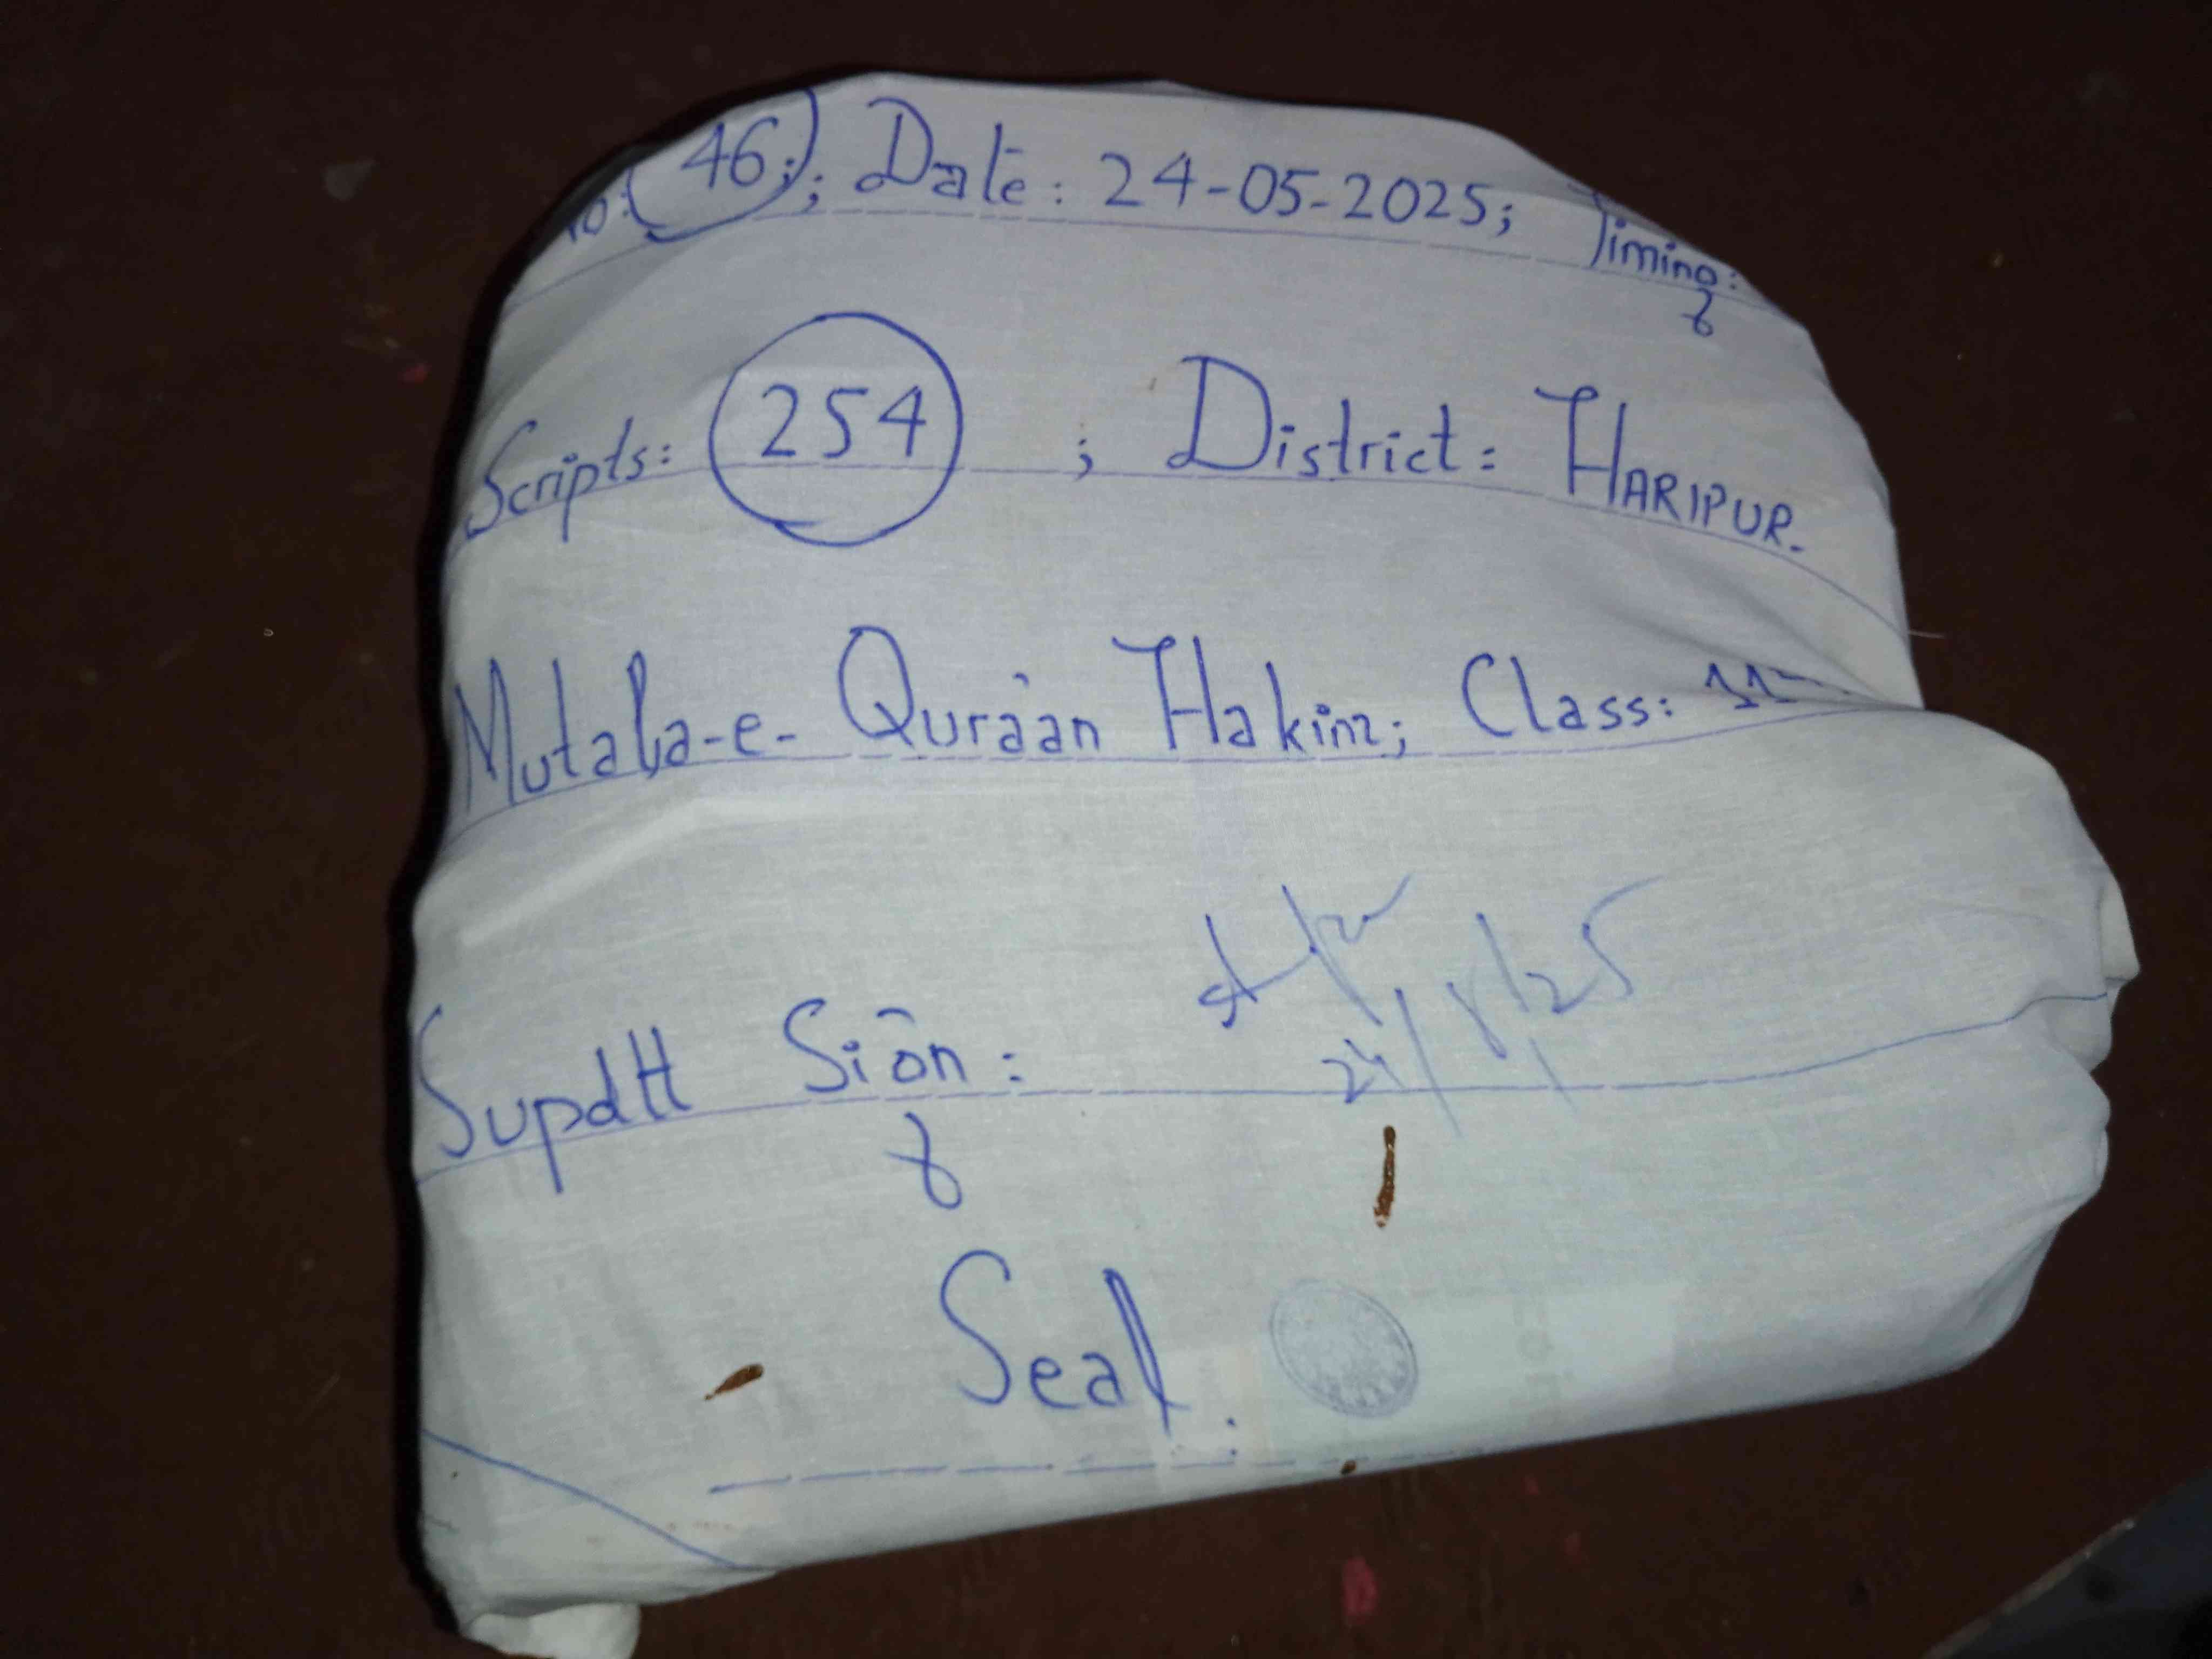 No: 46; Date: 24-05-2025; Timing:
Scripts: 254 ; District: HARIPUR.
Mutala-e- Qura'an Hakim; Class: 11
Supdtt Sign: 24/5/25
Seal: